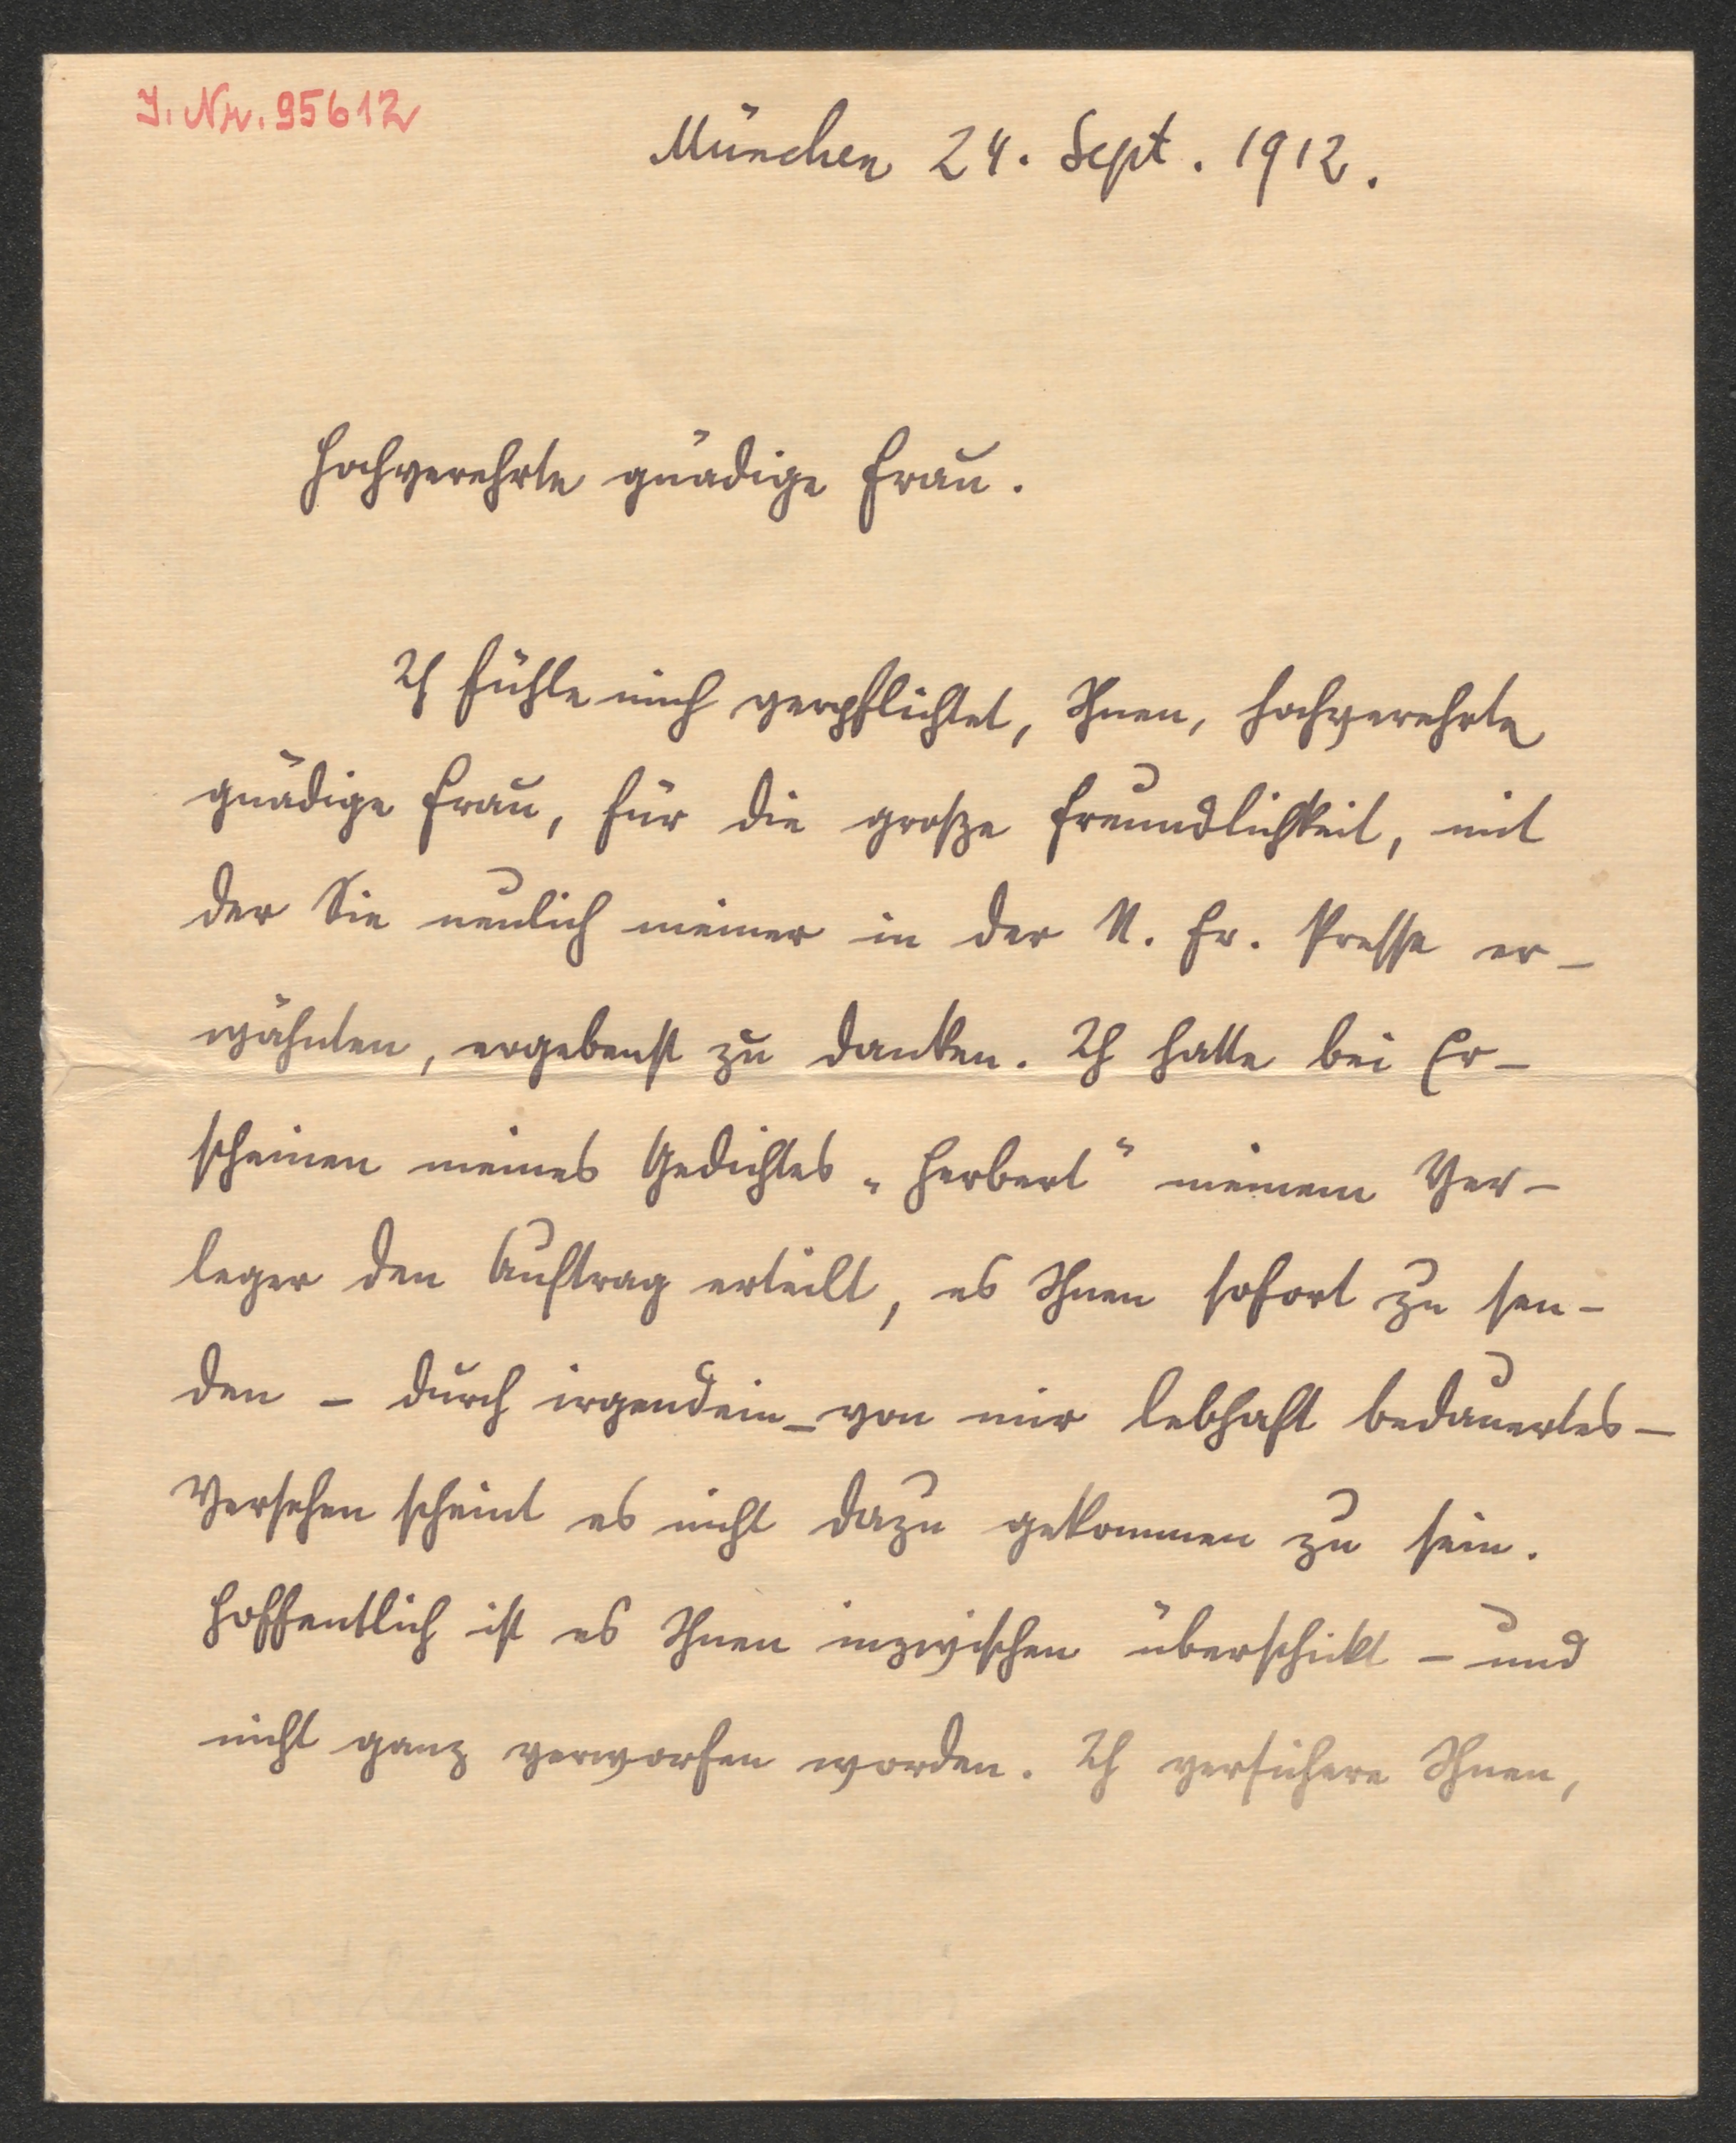 J. Nr. 95612
München 24. Sept. 1912.
Hochverehrte gnädige Frau.
Ich fühle mich verpflichtet, Ihnen, hochverehrte
gnädige Frau, für die große Freundlichkeit, mit
der Sie neulich meiner in der N. Fr. Presse er-
wähnten, ergebenst zu danken. Ich hatte bei Er-
scheinen meines Gedichtes „Herbert“ meinem Ver-
leger den Auftrag erteilt, es Ihnen sofort zu sen-
den – durch irgendein – von mir lebhaft bedauertes –
Versehen scheint es nicht dazu gekommen zu sein.
Hoffentlich ist es Ihnen inzwischen überschickt – und
nicht ganz verworfen worden. Ich versichere Ihnen,